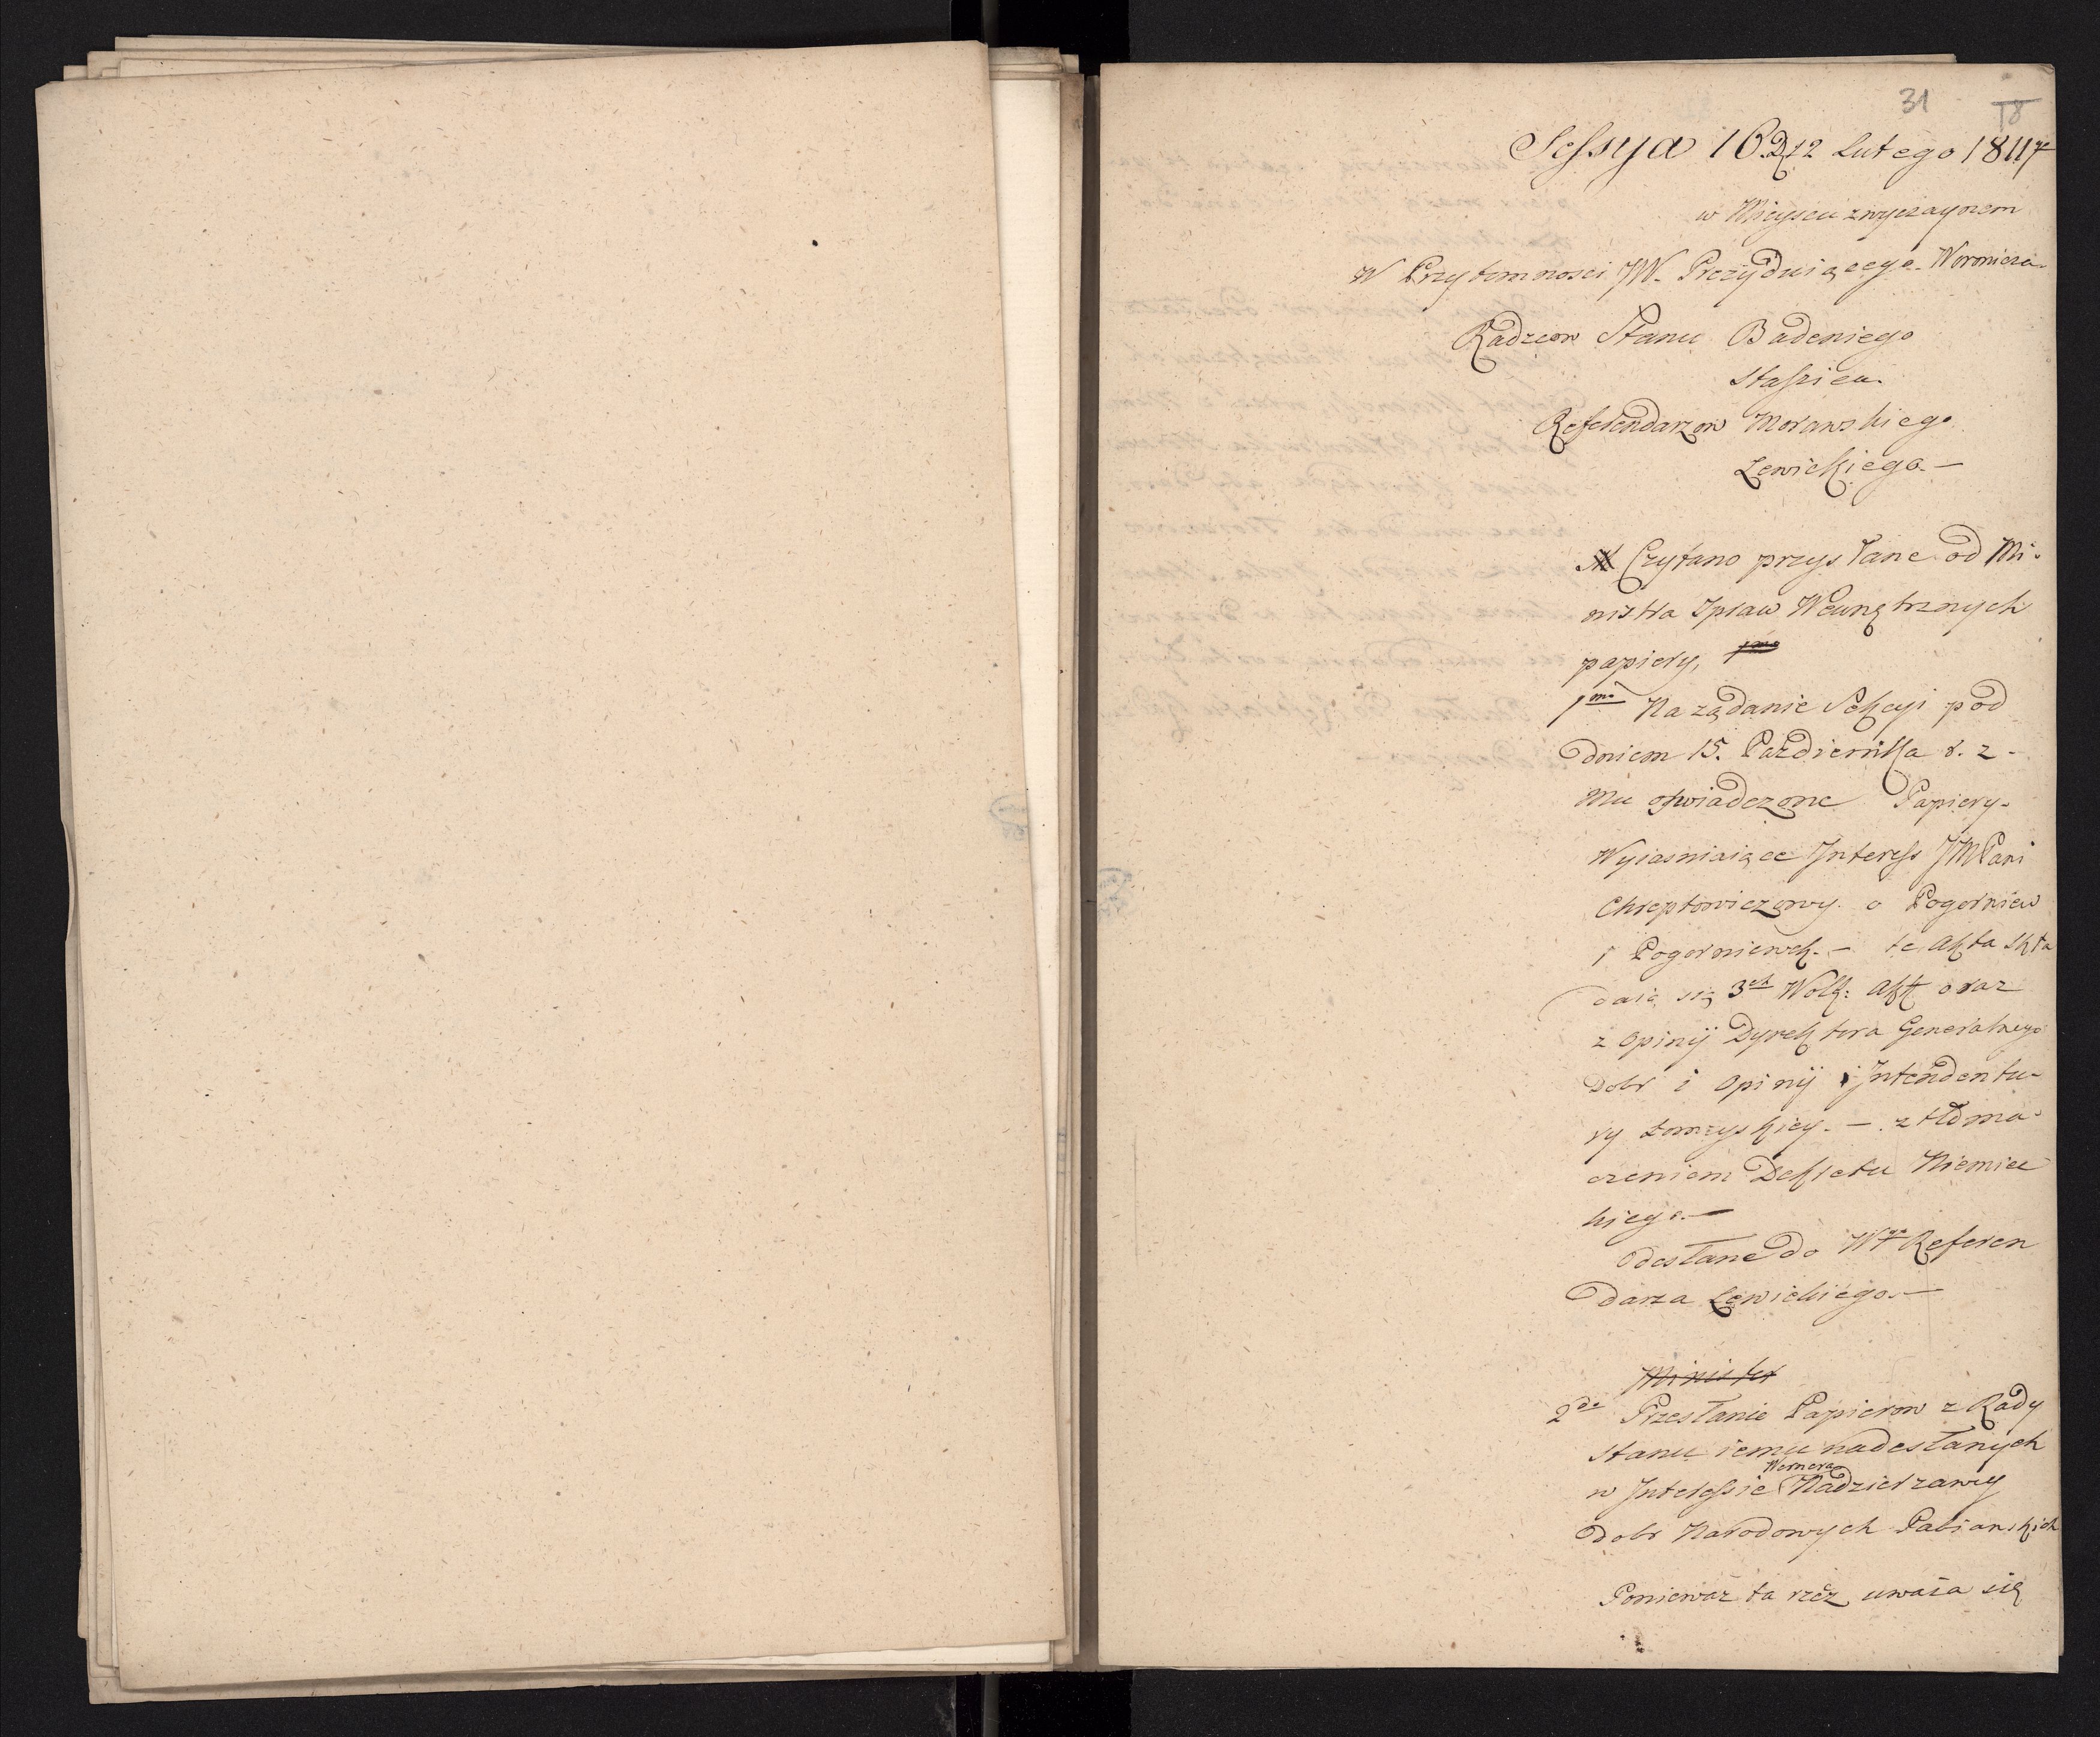 31 18
Sessya 16. D. 12 Lutego 1811 go
w Mieyscu zwyczaynem
W Przytomnosci JW. Prezyduiącego Woronicza
Radzcow Stanu Badeniego
Staszica
Referendarzow Morawskiego
Lewickiego. —
Czytano przysłane od Mi-
nistra Spraw Wewnętrznych
papiery, 1mo
1mo Na ządanie Sekcyi pod
dniem 15. Pazdziernika r. z.
Mu oswiadczone Papiery
Wyiasniaiące Interess JMPani
Chreptowiczowy o Pogorniew
i Pogorniewek. — te Akta skła
daią się 3ch Wolk: Akt oraz
z Opinij Dyrektora Generalnego
Dobr i Opinij Intendentu-
ry Łomzyskiey. — z tłóma-
czeniem Dekretu Niemiec
kiego. —
Odesłane do Wgo Referen
darza Lewickiego. —
Minister
2do Przesłanie Papierow z Rady
Stanu iemu nadesłanych
Wernera
w Interessie Nadzierzawy
Dobr Narodowych Pabianskich
Poniewaz ta rzecz uwaza się